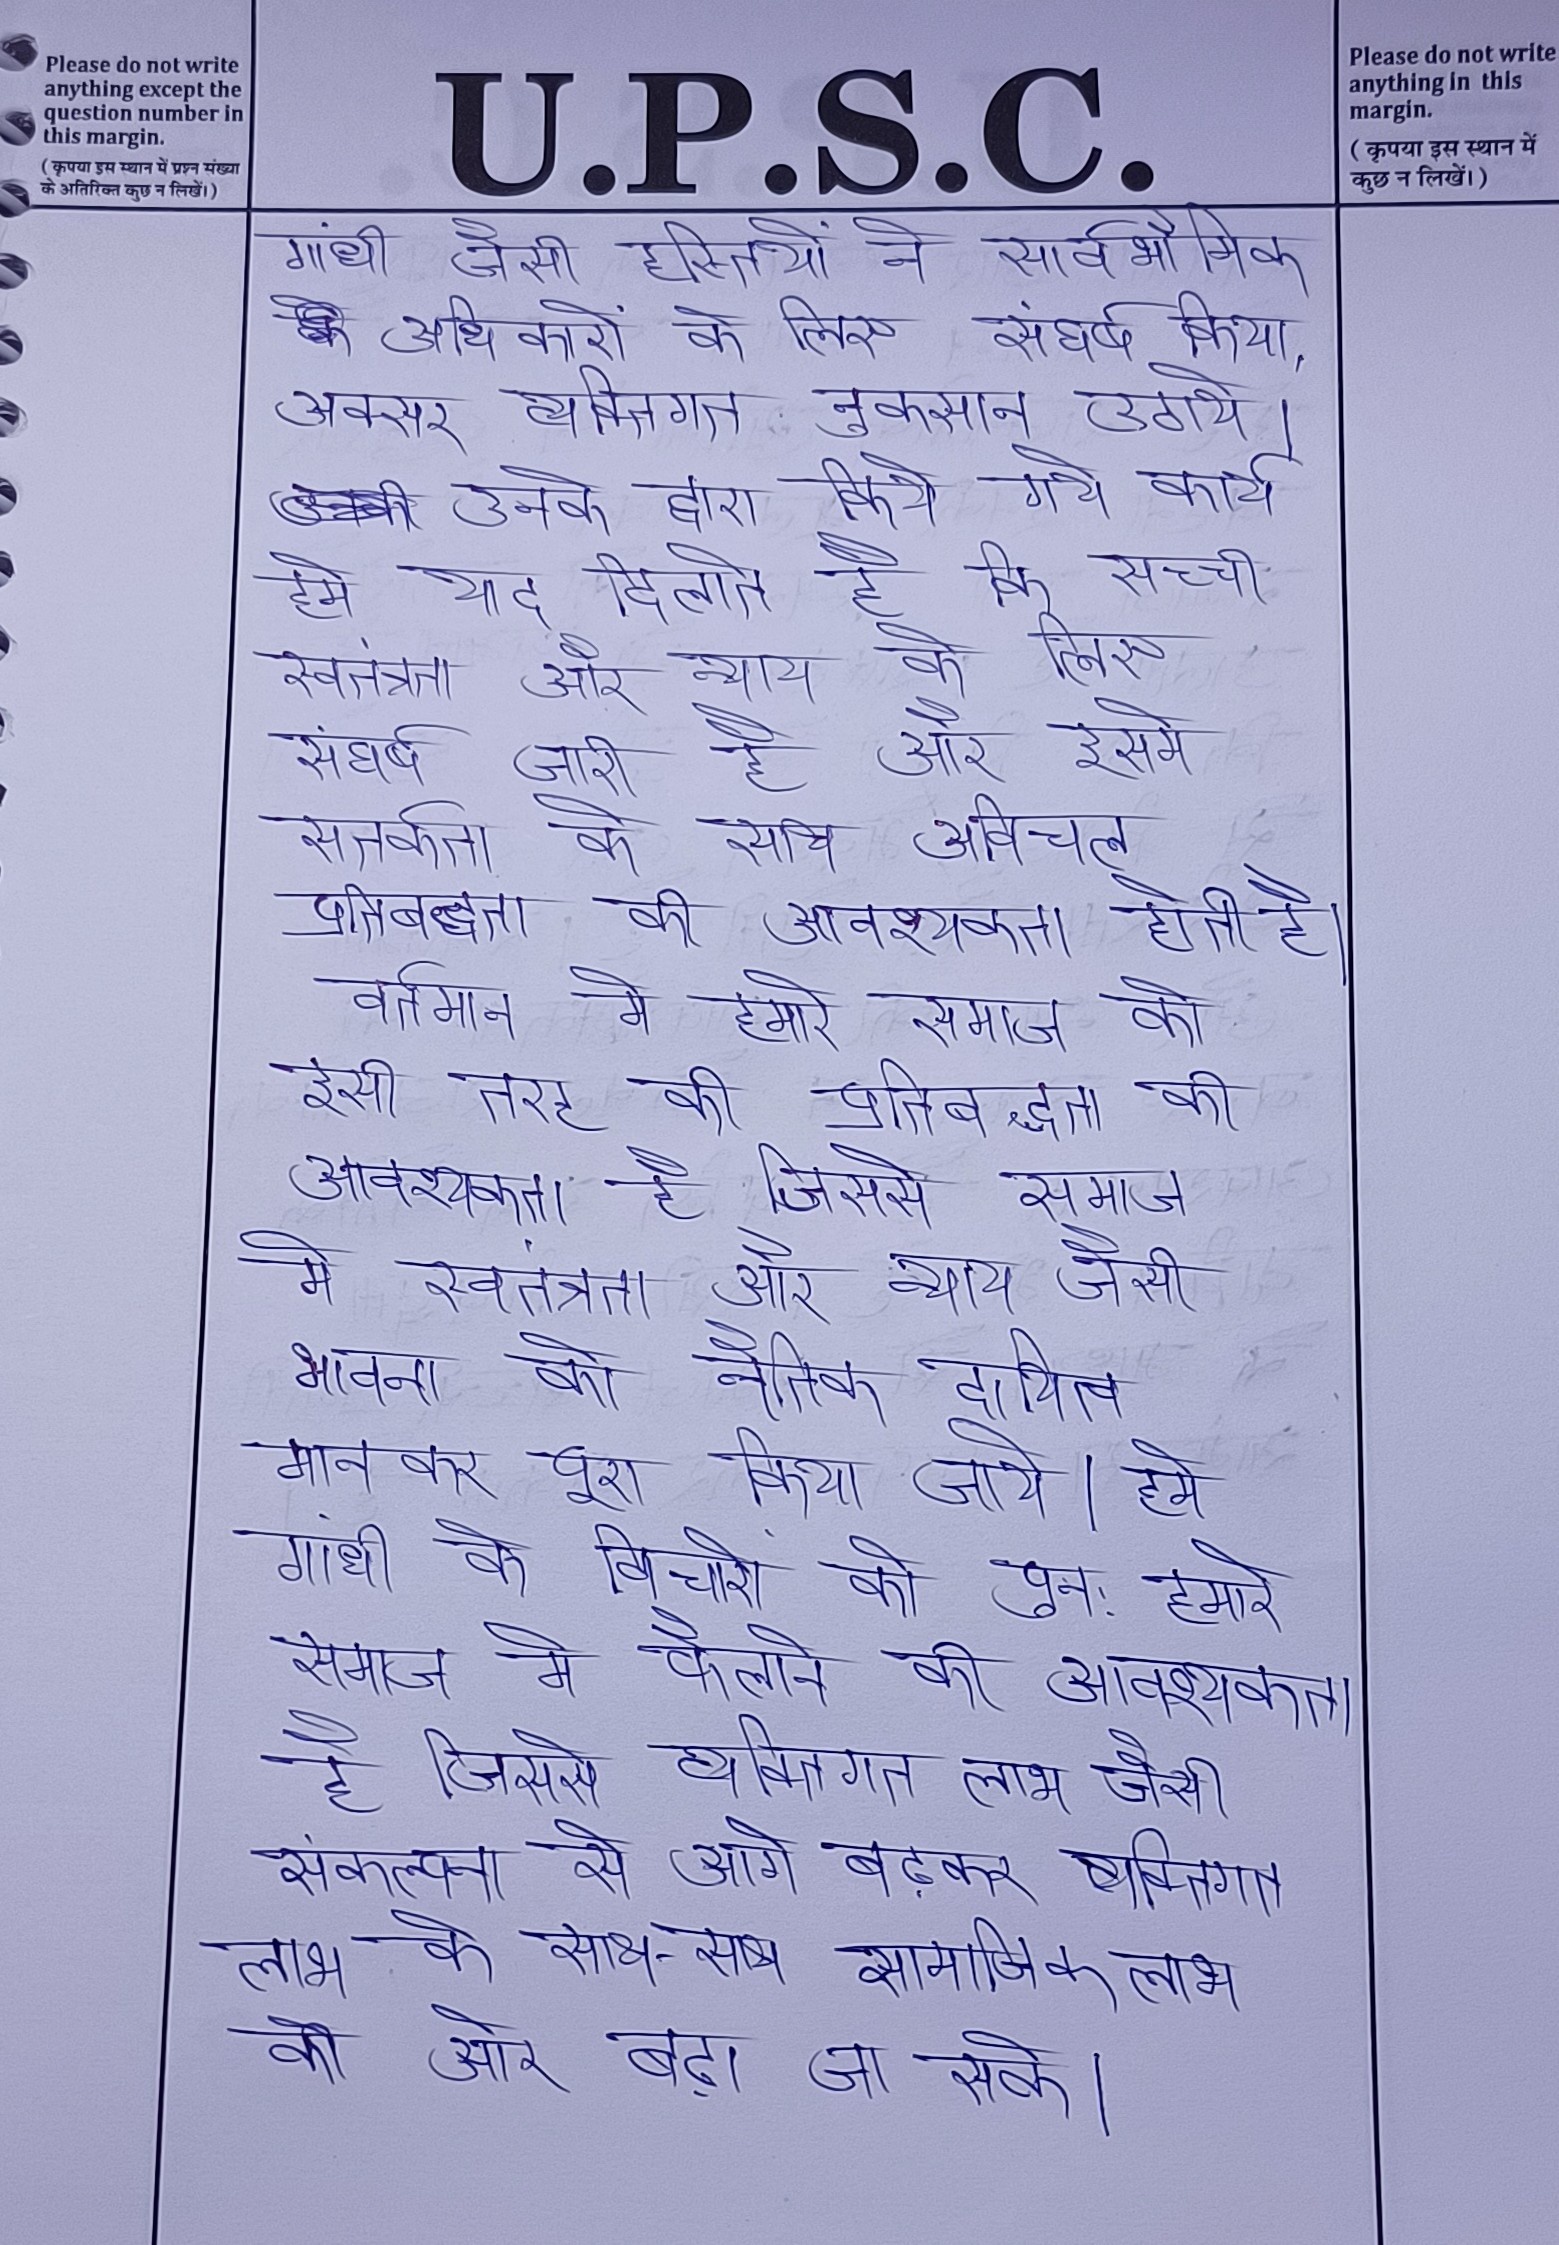 Please do not write
anything except the
question number in
this margin.
( कृपया इस स्थान में प्रश्न संख्या
के अतिरिक्त कुछ न लिखें।)
U.P.S.C.
Please do not write
anything in this
margin.
( कृपया इस स्थान में
कुछ न लिखें।)
गांधी जैसी हस्तियों ने सार्वभौमिक
के अधिकारों के लिए संघर्ष किया,
अक्सर व्यक्तिगत नुकसान उठाये।
उनकी उनके द्वारा किये गये कार्य
हमे याद दिलाते है कि सच्ची
स्वतंत्रता और न्याय के लिए
संघर्ष जारी है और इसमे
सतर्कता के साथ अविचल
प्रतिबद्धता की आवश्यकता होती है।
वर्तमान मे हमारे समाज को
इसी तरह की प्रतिबद्धता की
आवश्यकता है जिससे समाज
मे स्वतंत्रता और न्याय जैसी
भावना को नैतिक दायित्व
मान कर पूरा किया जाये। हमे
गांधी के विचारों को पुन: हमारे
समाज मे फैलाने की आवश्यकता
है जिससे व्यक्तिगत लाभ जैसी
संकल्पना से आगे बढ़कर व्यक्तिगत
लाभ के साथ-साथ सामाजिक लाभ
की ओर बढ़ा जा सके।